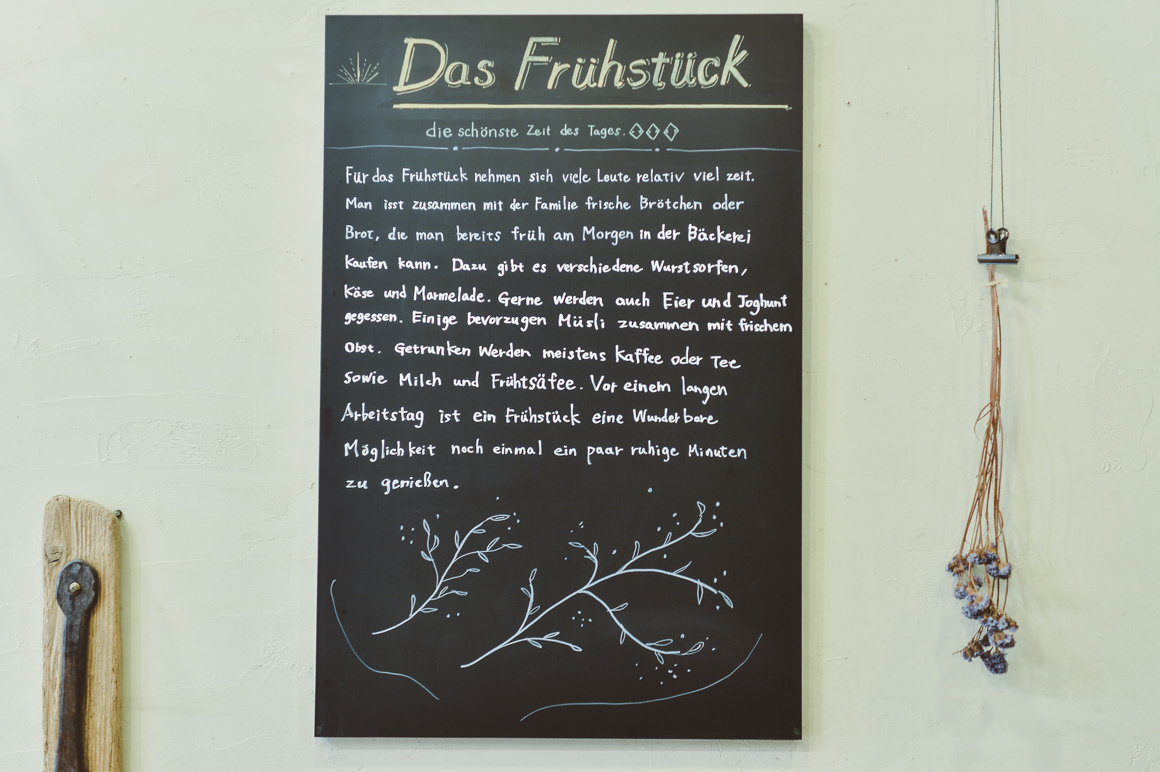 Das Frühstück
die schönste Zeit des Tages.
Für das Frühstück nehmen sich viele Leute relativ viel zeit.
Man isst zusammen mit der Familie frische Brötchen oder
Brot, die man bereits früh am Morgen in der Bäckerei
Kaufen kann. Dazu gibt es verschiedene Wurstsorfen,
Käse und Marmelade. Gerne werden auch Eier und Joghunt
gegessen. Einige bevorzugen Müsli zusammen mit frischem
Obst. Getrunken Werden meistens Kaffee oder Tee
Sowie Milch und Frühtsäfee. Vor einem langen
Arbeitstag ist ein Frühstück eine Wunderbare
Möglichkeit noch einmal ein paar ruhige Minuten
zu genießen.